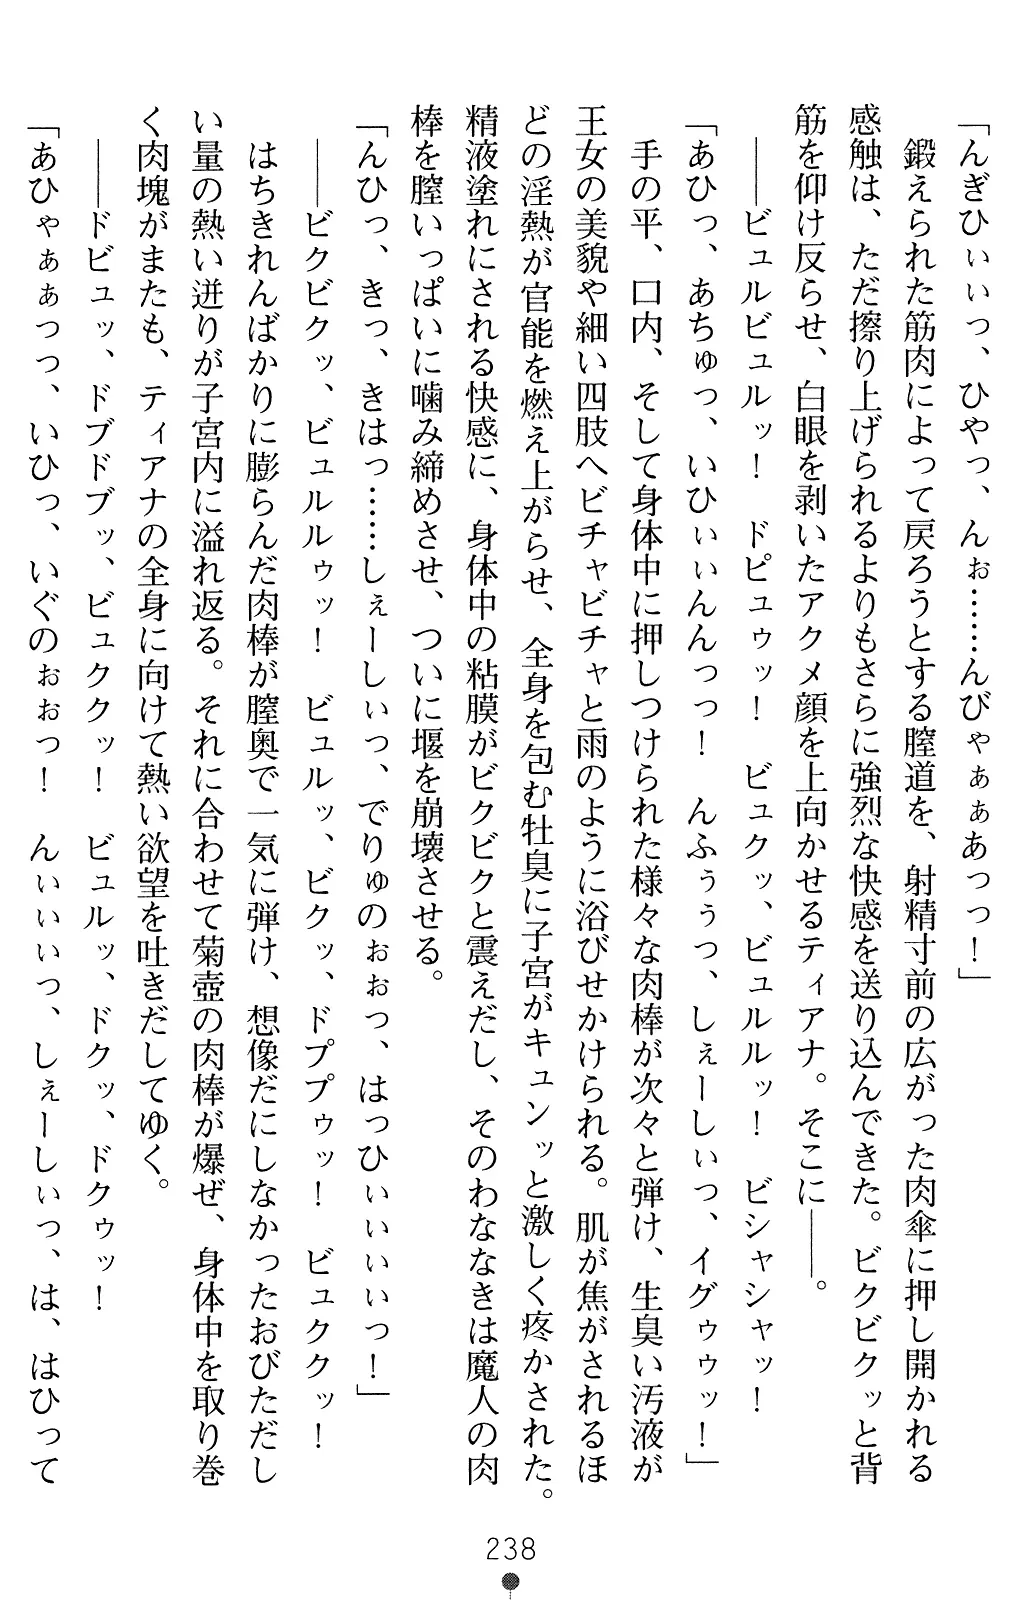 「んぎひぃぃっ、ひやっ、んぉ……んびゃぁぁあっっ！」
　鍛えられた筋肉によって戻ろうとする膣道を、射精寸前の広がった肉傘に押し開かれる
感触は、ただ擦り上げられるよりもさらに強烈な快感を送り込んできた。ビクビクッと背
筋を仰け反らせ、白眼を剥いたアクメ顔を上向かせるティアナ。そこに――。
　――ビュルビュルッ！　ドピュゥッ！　ビュクッ、ビュルルッ！　ビシャシャッ！
「あひっ、あちゅっ、いひぃぃんんっっ！　んふぅぅっ、しぇーしぃっ、イグゥゥッ！」
　手の平、口内、そして身体中に押しつけられた様々な肉棒が次々と弾け、生臭い汚液が
王女の美貌や細い四肢へビチャビチャと雨のように浴びせかけられる。肌が焦がされるほ
どの淫熱が官能を燃え上がらせ、全身を包む牡臭に子宮がキュンッと激しく疼かされた。
精液塗れにされる快感に、身体中の粘膜がビクビクと震えだし、そのわななきは魔人の肉
棒を膣いっぱいに噛み締めさせ、ついに堰を崩壊させる。
「んひっ、きっ、きはっ……しぇーしぃっ、でりゅのぉぉっ、はっひぃぃぃぃっ！」
　――ビクビクッ、ビュルルゥッ！　ビュルッ、ビクッ、ドププゥッ！　ビュククッ！
　はちきれんばかりに膨らんだ肉棒が膣奥で一気に弾け、想像だにしなかったおびただし
い量の熱い迸りが子宮内に溢れ返る。それに合わせて菊壺の肉棒が爆ぜ、身体中を取り巻
く肉塊がまたも、ティアナの全身に向けて熱い欲望を吐きだしてゆく。
　――ドビュッ、ドブドブッ、ビュククッ！　ビュルッ、ドクッ、ドクゥッ！
「あひゃぁぁっっ、いひっ、いぐのぉぉっ！　んぃぃぃっ、しぇーしぃっ、は、はひって
238